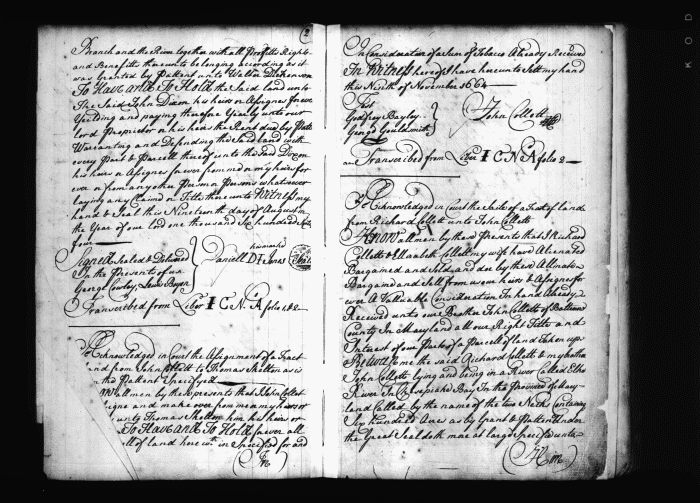 2
Branch and the River together with all Proffitts Rights
and Benefitts thereunto belonging according as it
was Granted by Pattent unto Walter Dickenson
To Have and To Hold the Said Land unto
The Said John Dixon his heirs or Assignes for ever
Yeilding and paying therefore Yearly unto our
lord Proprietor or his heirs the Rent due by Patt
Warranting and Defending the Said land with
every Part & Parcell thereof unto the Said Dixon
his heirs or Assignes for ever from me or my heirs for
ever or from any other Person or Persons whatsoever
laying any Claime or Title thereunto Witness my
hand & Seal this Nineteenth day of August in
the Year of our lord one thousand Six hundred Sixty
four
Signed Sealed & Delivered
In the Presents of us
George Cowley, Lewis Bryan
his marke
Daniell D Jones
Transcribed from Liber I C.N.A folio 1 & 2
Acknowledged in Court the Assignment of a Tract
land from John Collett to Thomas Skelton as is
the Pattent Specifyed
allmen by these presents that I John Collet
igne and make over from me or my heirs or
unto Thomas Skelton him his heirs or
To Have and To Hold for ever all
ll of land here in Specified for and
In
In Consideration of a Sum of Tobacco Already Received
In Witness hereof I have hereunto Sett my hand
this Ninth of November 1664
Test
Godfrey Bayley
George Gouldsmith
John Collett
Transcribed from Liber I C.N.A folio 2
Acknowledged in Court the Sale of a Tract of land
from Richard Collett unto John Collett
Know all men by these Presents that I Richard
Collett & Elizabeth Collett my wife have Alienated
Bargained and Sold and doe by these Alienate
Bargaine and Sell from us our heirs & Assignes for
ever A Valuable Consideration In hand Already
Received unto our Brother John Collett of Baltimore
County In Maryland all our Right Title and
Interest of our Part of a Parcell of land Taken up
Betwixt me the said Richard Collett & my brother
John Collett lying and being in a River Called Elke
River In Chesepiake Bay In the Province of Mary
land Called by the name of the two Necks Containing
Six hundred Acres as by Grant & Pattent under
the Great Seel doth more at large Specifie unto
Him